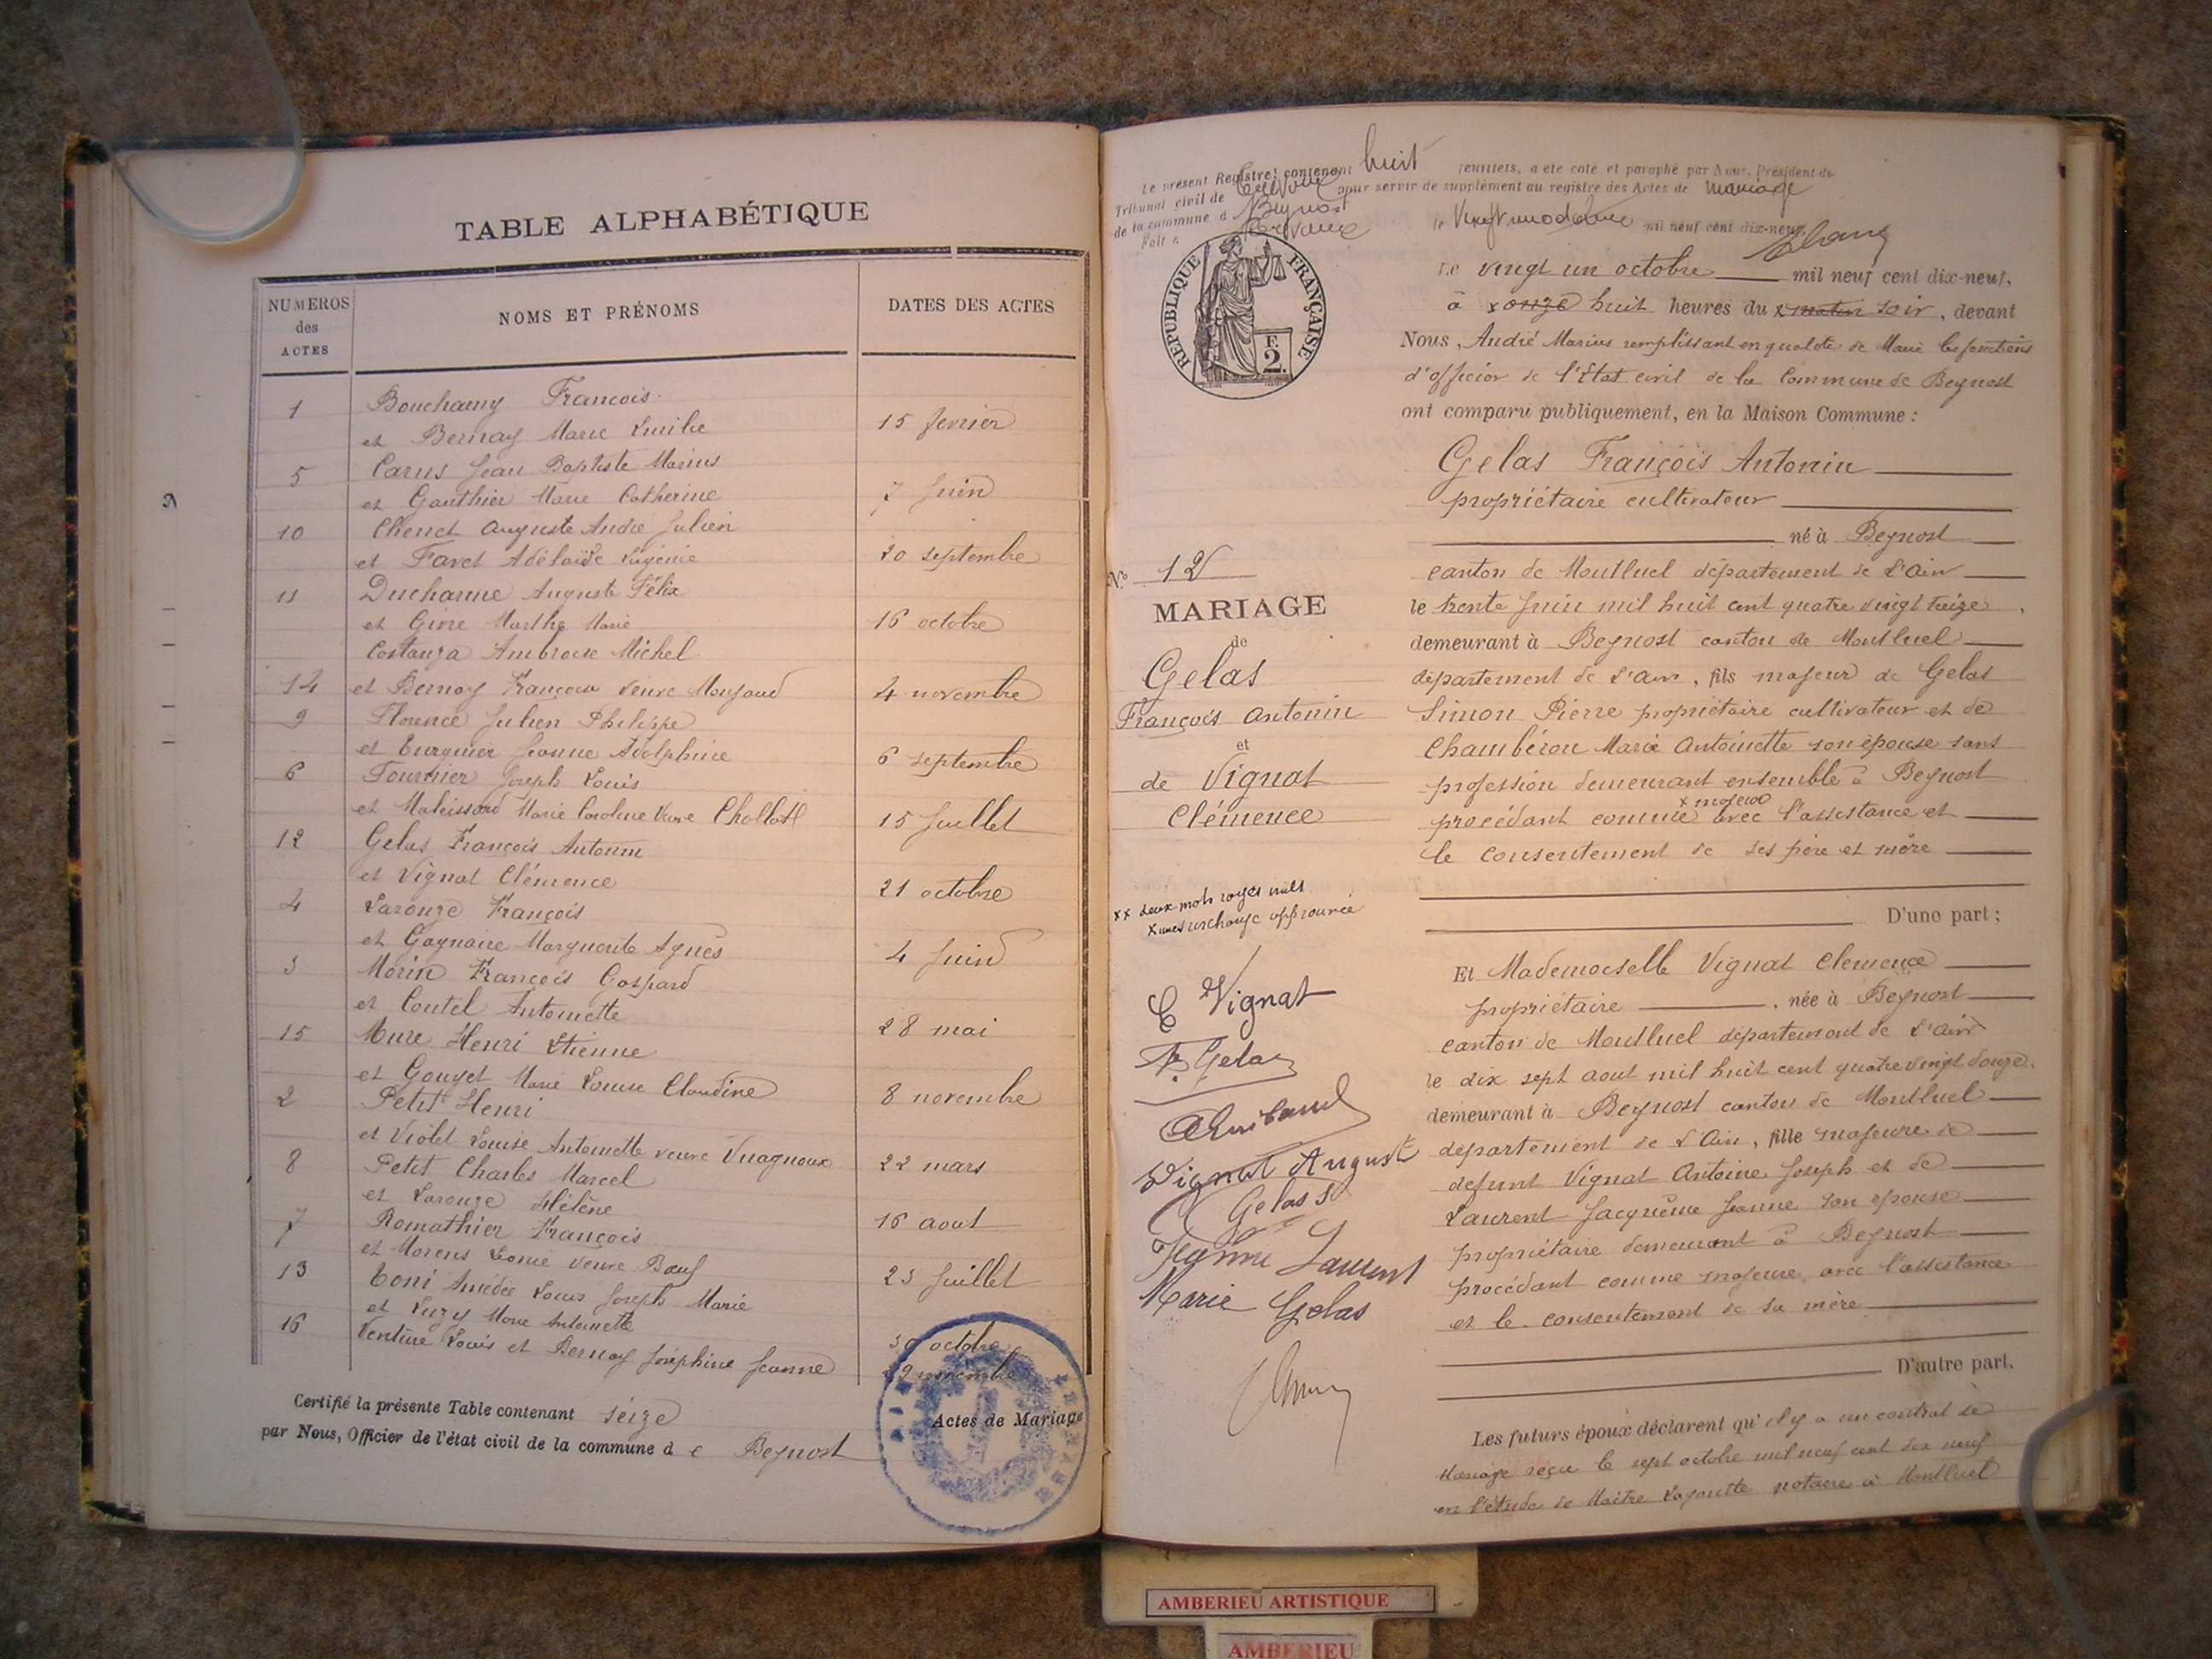 TABLE ALPHABÉTIQUE
NUMEROS
des
ACTES
NOMS ET PRÉNOMS
DATES DES ACTES
1 Bouchamy François
et Bernay Marie Emilie 15 fevrier
5 Carus Jean Baptiste Marius
et Gauthier Marie Catherine 7 Juin
10 Chenet Auguste André Julien
et Favet Adélaïde Eugénie 20 septembre
11 Ducharme Auguste Félix
et Givre Marthe Marie 16 octobre
Costanza Ambroise Michel
14 et Bernay Françoise veuve Monjaud 4 novembre
9 Florence Julien Philippe
et Jeanne Adolphine 6 septembre
6 Fournier Joseph Louis
et Marie Caroline Veuve 15 Juillet
12 Gelas François Antonin
et Vignat Clémence 21 octobre
4 Larouze François
et Gagnaire Marguerite Agnès 4 Juin
3 Morin François Gaspard
et Coutel Antoinette 28 mai
15 Mure Henri Etienne
et Gouyet Marie Louise Claudine 8 novembre
2 Petit Henri
et Violet Louise Antoinette veuve Vuagnoux 22 mars
8 Petit Charles Marcel
et Larouze Hélène 16 aout
7 Romathier François
et Morens Leonie veuve Bœuf 23 Juillet
13 Toni Amédée Louis Joseph Marie
et Luzy Marie Antoinette 30 octobre
16 Venture Louis et Bernay Joséphine Jeanne 29 novembre
Certifié la présente Table contenant seize Actes de Mariage
par Nous, Officier de l'état civil de la commune d e Beynost
Le présent Registre, contenant huit feuillets, a été coté et paraphé par Nous, Président du
Tribunal civil de Trévoux pour servir de supplément au registre des Actes de mariage
de la commune d Beynost
Fait à Trévoux le Vingt un octobre mil neuf cent dix-neuf.
REPUBLIQUE FRANÇAISE
F.
2.
Le vingt un octobre mil neuf cent dix-neuf,
à x onze huit heures du x matin soir, devant
Nous, André Marius remplissant en qualité de Maire les fonctions
d'officier de l'Etat civil de la Commune de Beynost
ont comparu publiquement, en la Maison Commune :
Gelas François Antonin
propriétaire cultivateur
né à Beynost
canton de Montluel département de l'Ain
le trente Juin mil huit cent quatre vingt treize,
demeurant à Beynost canton de Montluel
département de l'Ain, fils majeur de Gelas
Simon Pierre propriétaire cultivateur et de
Chambéron Marie Antoinette son épouse sans
profession demeurant ensemble à Beynost
x majeur
procédant comme avec l'assistance et
le consentement de ses père et mère
D'une part ;
N° 12
MARIAGE
de
Gelas
François Antonin
et
de Vignat
Clémence
xx deux mots rayés nuls
x une surcharge approuvée
C Vignat
F. Gelas
Vignat August
Gelas S
Jeanne Laurent
Marie Gelas
Et Mademoiselle Vignat Clemence
propriétaire, née à Beynost
canton de Montluel département de l'Ain
le dix sept aout mil huit cent quatre vingt douze,
demeurant à Beynost canton de Montluel
département de l'Ain, fille majeure de
defunt Vignat Antoine Joseph et de
Laurent Jacquème Jeanne son épouse
propriétaire demeurant à Beynost
procédant comme majeure, avec l'assistance
et le consentement de sa mère
D'autre part.
Les futurs époux déclarent qu'il y a un contrat de
Mariage reçu le sept octobre mil neuf cent dix neuf
en l'étude de Maitre notaire à Montluel
AMBERIEU ARTISTIQUE
AMBERIEU